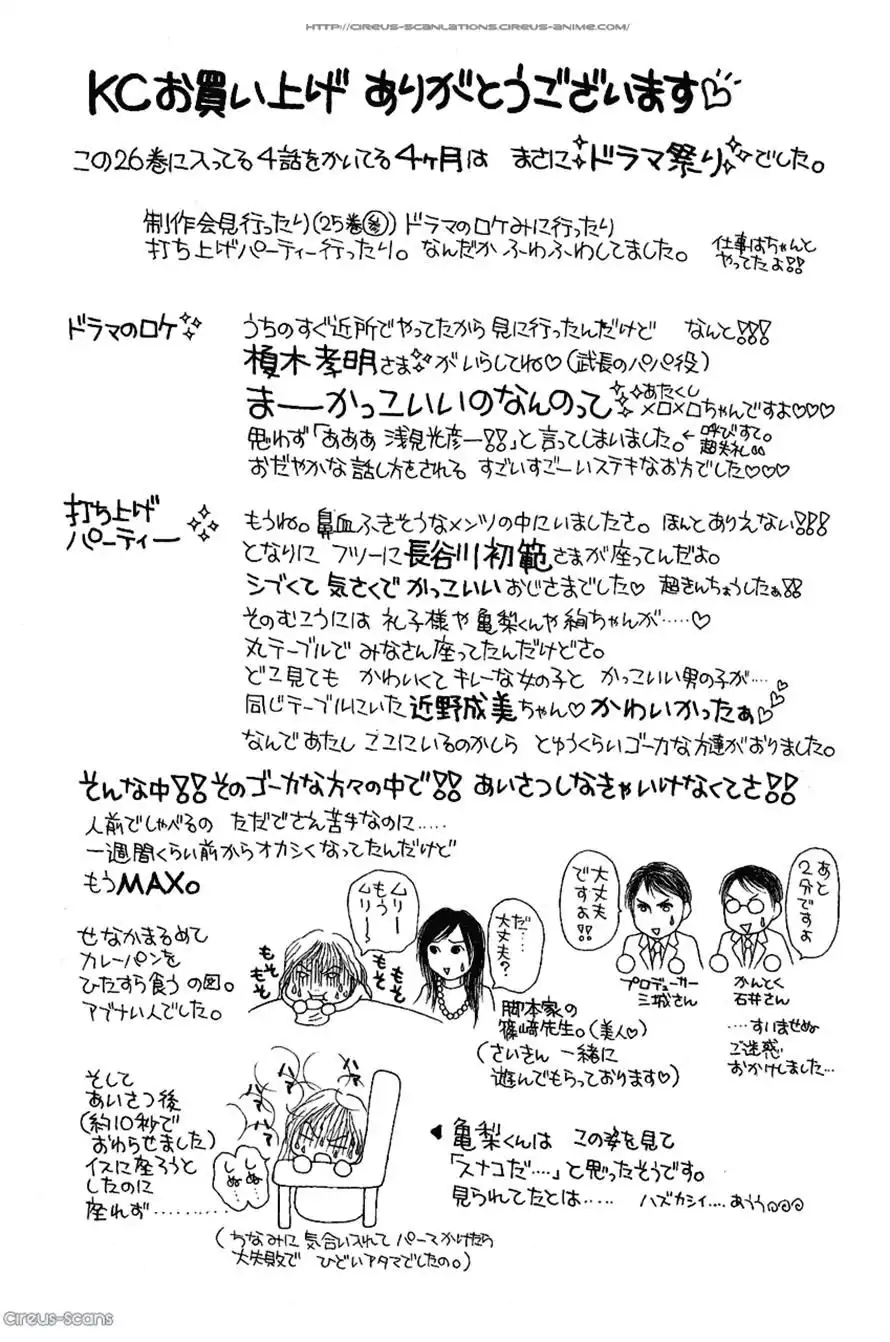 HTTP://CIREUS-SCANLATIONS.CIREUS-ANIME.COM/
KCお買い上げ ありがとうございます♡
この26巻に入ってる4話をかいてる4ヶ月は まさにドラマ祭りでした。
制作会見行ったり(25巻参) ドラマのロケみに行ったり
打ち上げパーティー行ったり。なんだか ふわふわしてました。
仕事はちゃんと
やってたよ!!
ドラマのロケ
うちのすぐ近所でやってたから 見に行ったんだけど なんと!!!
榎木孝明さまがいらしてね♡(武長のパパ役)
まーーかっこいいのなんのって
あたくし
メロメロちゃんですよ♡♡♡
思わず「あああ 浅見光彦ー!!」と言ってしまいました。
←呼びすて。
超失礼
おだやかな話し方をされる すごいすごーいステキなお方でした♡♡♡
打ち上げ
パーティー
もうね。鼻血ふきそうなメンツの中にいましたさ。ほんとありえない!!!
となりに フツーに長谷川初範さまが座ってんだよ。
シブくて 気さくで かっこいい おじさまでした♡ 超きんちょうしたぁ!!
そのむこうには 礼子様や亀梨くんや絢ちゃんが……♡
丸テーブルで みなさん座ってたんだけどさ。
どこ見ても かわいくてキレーな女の子と かっこいい男の子が…
同じテーブルにいた 近野成美ちゃん♡ かわいかったぁ♡♡
なんであたし ここにいるのかしら とゆうくらいゴーカな方達がおりました。
そんな中!! そのゴーカな方々の中で!! あいさつしなきゃいけなくてさ!!
人前でしゃべるの ただでさえ苦手なのに……
一週間くらい前からオカシくなってたんだけど
もうMAX。
せなかまるめて
カレーパンを
ひたすら食う の図。
アブナい人でした。
もそ
もそ
もそ
もそ
ムリー
もう
ムリ〜
だ……
大丈夫?
大丈夫
ですよ!!
あと
2分ですよ
脚本家の
篠﨑先生。(美人♡)
(さいきん 一緒に
遊んでもらっております♡)
プロデューサー
三城さん
かんとく
石井さん
…すいませぬ
ご迷惑
おかけしました…
そして
あいさつ後
(約10秒で
おわらせました)
イスに座ろうと
したのに
座れず…………
しぬ…
しぬ…
(ちなみに 気合い入れて パーマかけたら
大失敗で ひどいアタマでしたの。)
◀亀梨くんは この姿を見て
「スナコだ…」と思ったそうです。
見られてたとは…… ハズカシイ… あうう
Cireus-Scans